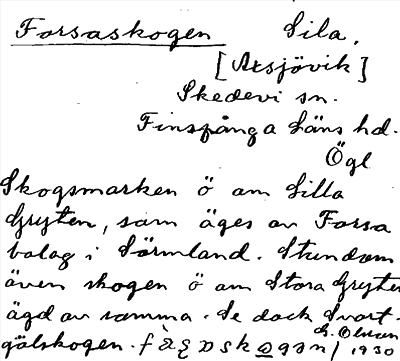 Forsaskogen Sila.
[Axsjövik]
Skedevi sn.
Finspånga Läns hd.
Ögl
Skogsmarken ö om Lilla
Gryten, som äges av Forsa
bolag i Sörmland. Stundom
även skogen ö om Stora Gryten
ägd av samma. Se dock Svart-
gölskogen.
1930